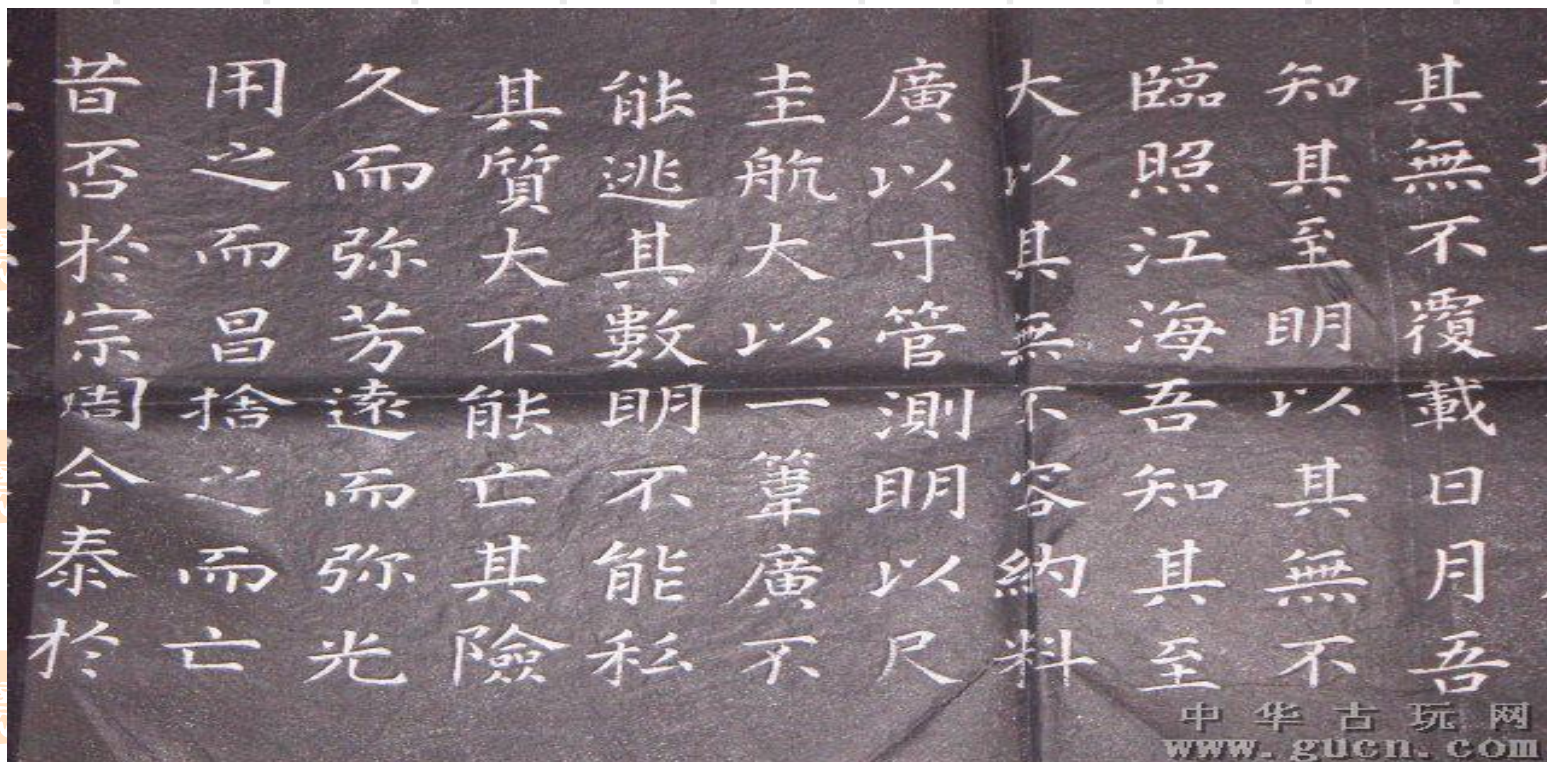 其無不覆載日月吾
知其至明以其無不
臨照江海吾知其至
大以其無不容納料
廣以寸管測明以尺
圭航大以一葦廣不
能逃其數明不能私
其質大不能亡其險
久而弥芳遠而弥光
用之而昌捨之而亡
昔否於宗周今泰於
中华古玩网
www.gucn.com